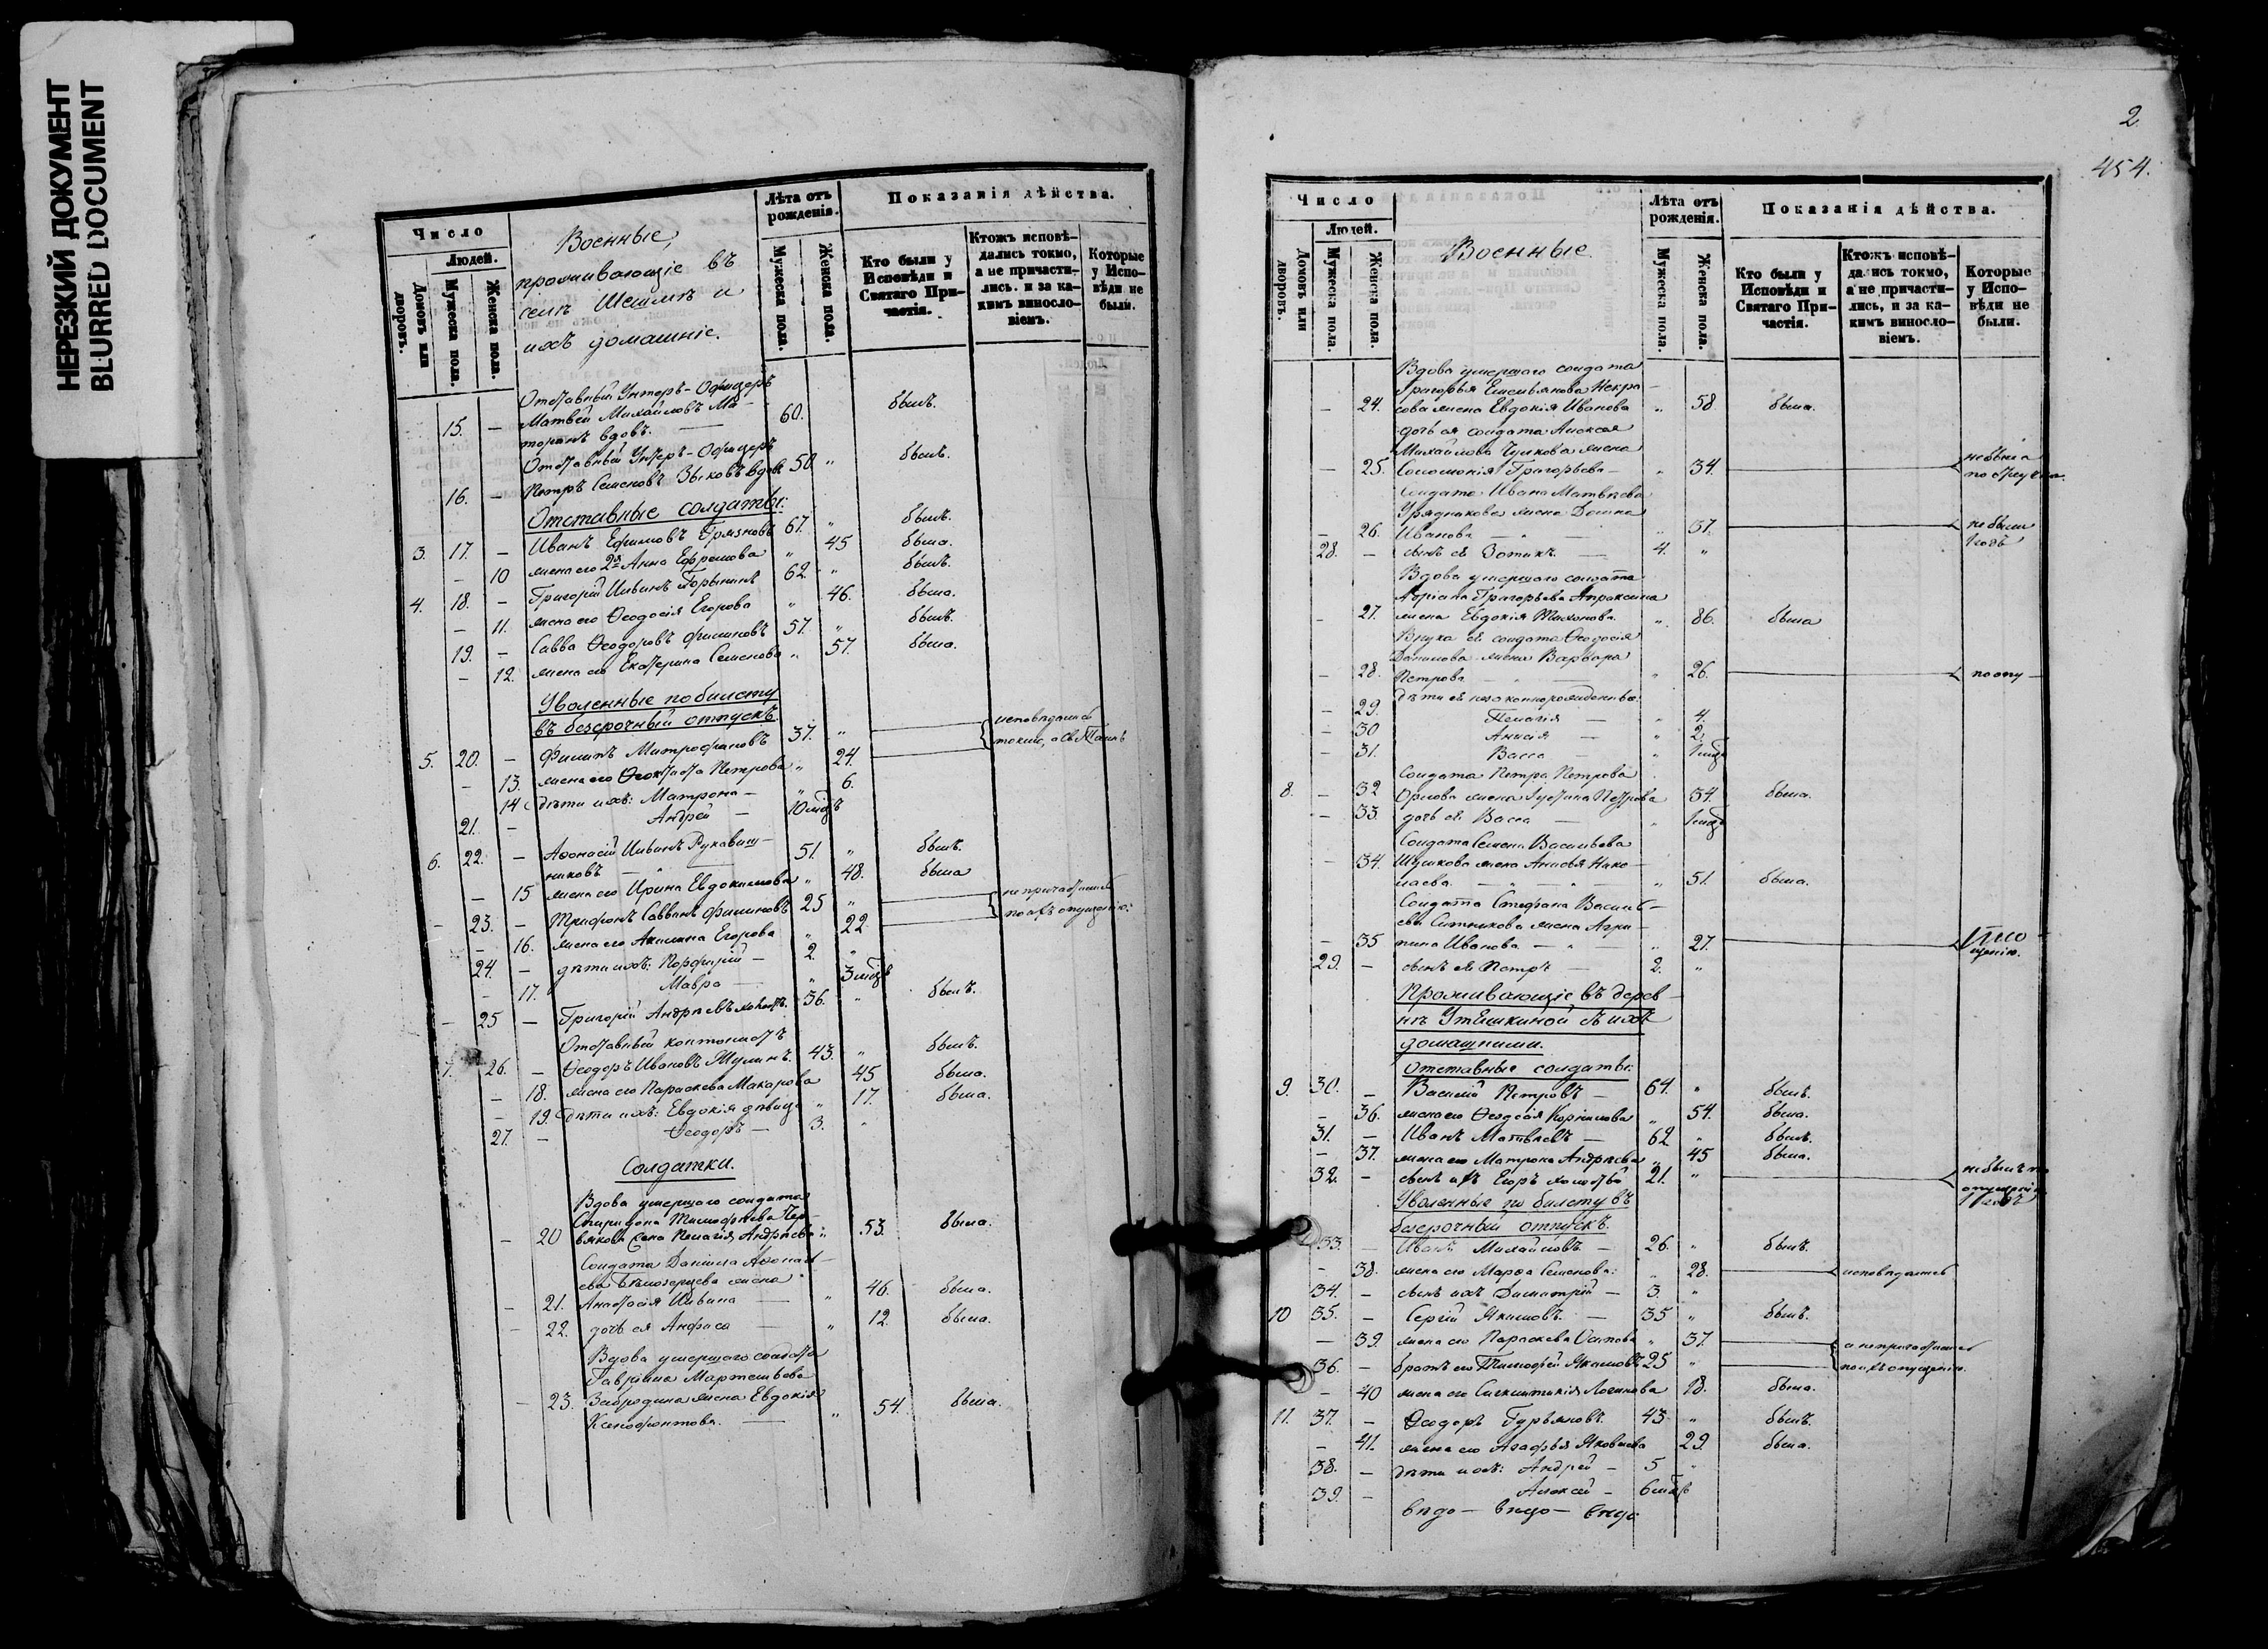 НЕРЕЗКИЙ ДОКУМЕНТ
BLURRED DOCUMENT
Число
Людей.
Домовъ или дворовъ.
Мужеска пола.
Женска пола.
Военные,
проживающіе въ
селѣ Шешмѣ и
ихъ домашніе.
Лѣта отъ рожденія.
Мужеска пола.
Женска пола.
Показанія дѣйства.
Кто были у Исповѣди и Святаго Причастія.
Ктожъ исповѣ-
дались токмо,
а не причасти-
лись. и за ка-
кимъ винослo-
віемъ.
Которые
у Испо-
вѣди не
были.
Отставный Унтеръ-Офицеръ
15. — Матвей Михайловъ Ма- 60. былъ.
торинъ вдовъ.
Отставный Унтеръ-Офицеръ
16. — Петръ Семеновъ Зыковъ вдовъ 50 " былъ.
Отставные солдаты:
3. 17. — Иванъ Ефимовъ Грязновъ 67. " былъ.
— 10 жена его 2я Анна Ефремова " 45 была.
4. 18. — Григорій Ильинъ 62. " былъ.
— 11. жена его Ѳеодосія Егорова " 46. была.
19. — Савва Ѳеодоровъ Филиновъ 57. " былъ.
— 12. жена его Екатерина Семенова " 57. была.
Уволенные по билету
въ безсрочный отпускъ.
5. 20. — Филипъ Митрофановъ 37. "
— 13. жена его Ѳеоктиста Петрова " 24.
— 14 дѣти ихъ: Матрона — " 6.
21. — Андрей — 10 мцъ
6. 22. — Аѳонасій Ильинъ Рукавиш-
никовъ 51. " былъ.
— 15 жена его Ирина Евдокимова " 48. была
— 23. — Трифонъ Саввинъ Филиновъ 25 "
— 16. жена его Акилина Егорова " 22
24. — дѣти ихъ: Порфирій — 2. "
— 17. Мавра — " 3 мцъ
— 25 — Григорій Андреевъ холостъ. 36. " былъ.
Отставный
7. 26. — Ѳеодоръ Ивановъ 43. " былъ.
— 18. жена его Параскева Макарова 45 была.
— 19. дѣти ихъ: Евдокія дѣвица " 17. была.
27. — Ѳеодоръ — 3. "
Солдатки.
Вдова умершаго солдата
Спиридона Тимофеева Чер-
— 20 вякова жена Пелагія Андреева " 53. была.
Солдата Даніила Аѳонась-
ева Бѣлозерцева жена
— 21. Анастасія Ильина — " 46. была.
— 22. дочь ея Анфиса — " 12. была.
Вдова умершаго солдата
Гавріила Мартемьева
— 23. Забродина жена Евдокія
Ксенофонтова. — " 54. была.
2
454.
Число
Людей.
Домовъ или дворовъ.
Мужеска пола.
Женска пола.
Военные.
Лѣта отъ рожденія.
Мужеска пола.
Женска пола.
Показанія дѣйства.
Кто были у Исповѣди и Святаго Причастія.
Ктожъ исповѣ-
дались токмо,
а не причасти-
лись, и за ка-
кимъ винослo-
віемъ.
Которые
у Испо-
вѣди не
были.
Вдова умершаго солдата
Григорья Емельянова Некра-
— 24. сова жена Евдокія Иванова " 58 была.
дочь ея солдата Алексея
Михайлова Чулкова жена
— 25. Соломонія Григорьева — " 34. не была
по отлучкѣ.
Солдата Ивана Матвѣева
Урядникова жена Домна
— 26. Иванова — " 37. не были
28. — сынъ ея Зотикъ — 4. " 1 годъ
Вдова умершаго солдата
Адріана Григорьева Апраксина
— 27. жена Евдокія Тихонова " 86. была
Внука ея солдата Ѳеодосія
Данилова жена Варвара
— 28. Петрова — " 26. по опу —
— 29. дѣти ея незаконнорожденныя:
Пелагія — " 4.
— 30 Анисія — " 2.
— 31. Васса — " 1 мцъ
Солдата Петра Петрова
8. — 32 Орлова жена Іустина Петрова 34. была.
— 33. дочь ея Васса — " 1 мцъ
Солдата Семена Васильева
— 34. Шушкова жена Анисья Нико-
лаева. — " 51. была.
Солдата Стефана Василь-
ева Ситникова жена Агри-
— 35 пина Иванова — " 27. щенію.
29. — сынъ ея Петръ — 2. "
Проживающіе въ дерев-
нѣ Утяшкиной съ ихъ
домашними.
Отставные солдаты:
9. 30. — Василій Петровъ — 64. " былъ.
— 36. жена его Ѳеодосія Корнилова " 54. была.
31. — Иванъ Матвѣевъ — 62 " былъ.
— 37. жена его Матрона Андреева " 45 была.
32. — сынъ ихъ Егоръ холостъ 21. " не былъ по
опущенію
Уволенные по билету въ
безсрочный отпускъ.
33. — Иванъ Михайловъ — 26. " былъ.
— 38. жена его Марѳа Семенова: " 28. исповѣдалась
34. — сынъ ихъ Димитрій — 3. "
10 35. — Сергій Якимовъ — 35 " былъ.
— 39. жена его Параскева Осипова " 37. а не причастились
36. — братъ его Тимофей Якимовъ 25 " по ихъ опущенію.
— 40 жена его Синклитикія Логинова 18. была.
11. 37. — Ѳеодоръ Гурьяновъ 43 " былъ.
— 41. жена его Агафья Яковлева 29. была.
38. — дѣти ихъ: Андрей — 5 "
39. — Алексей — 6 мцъ